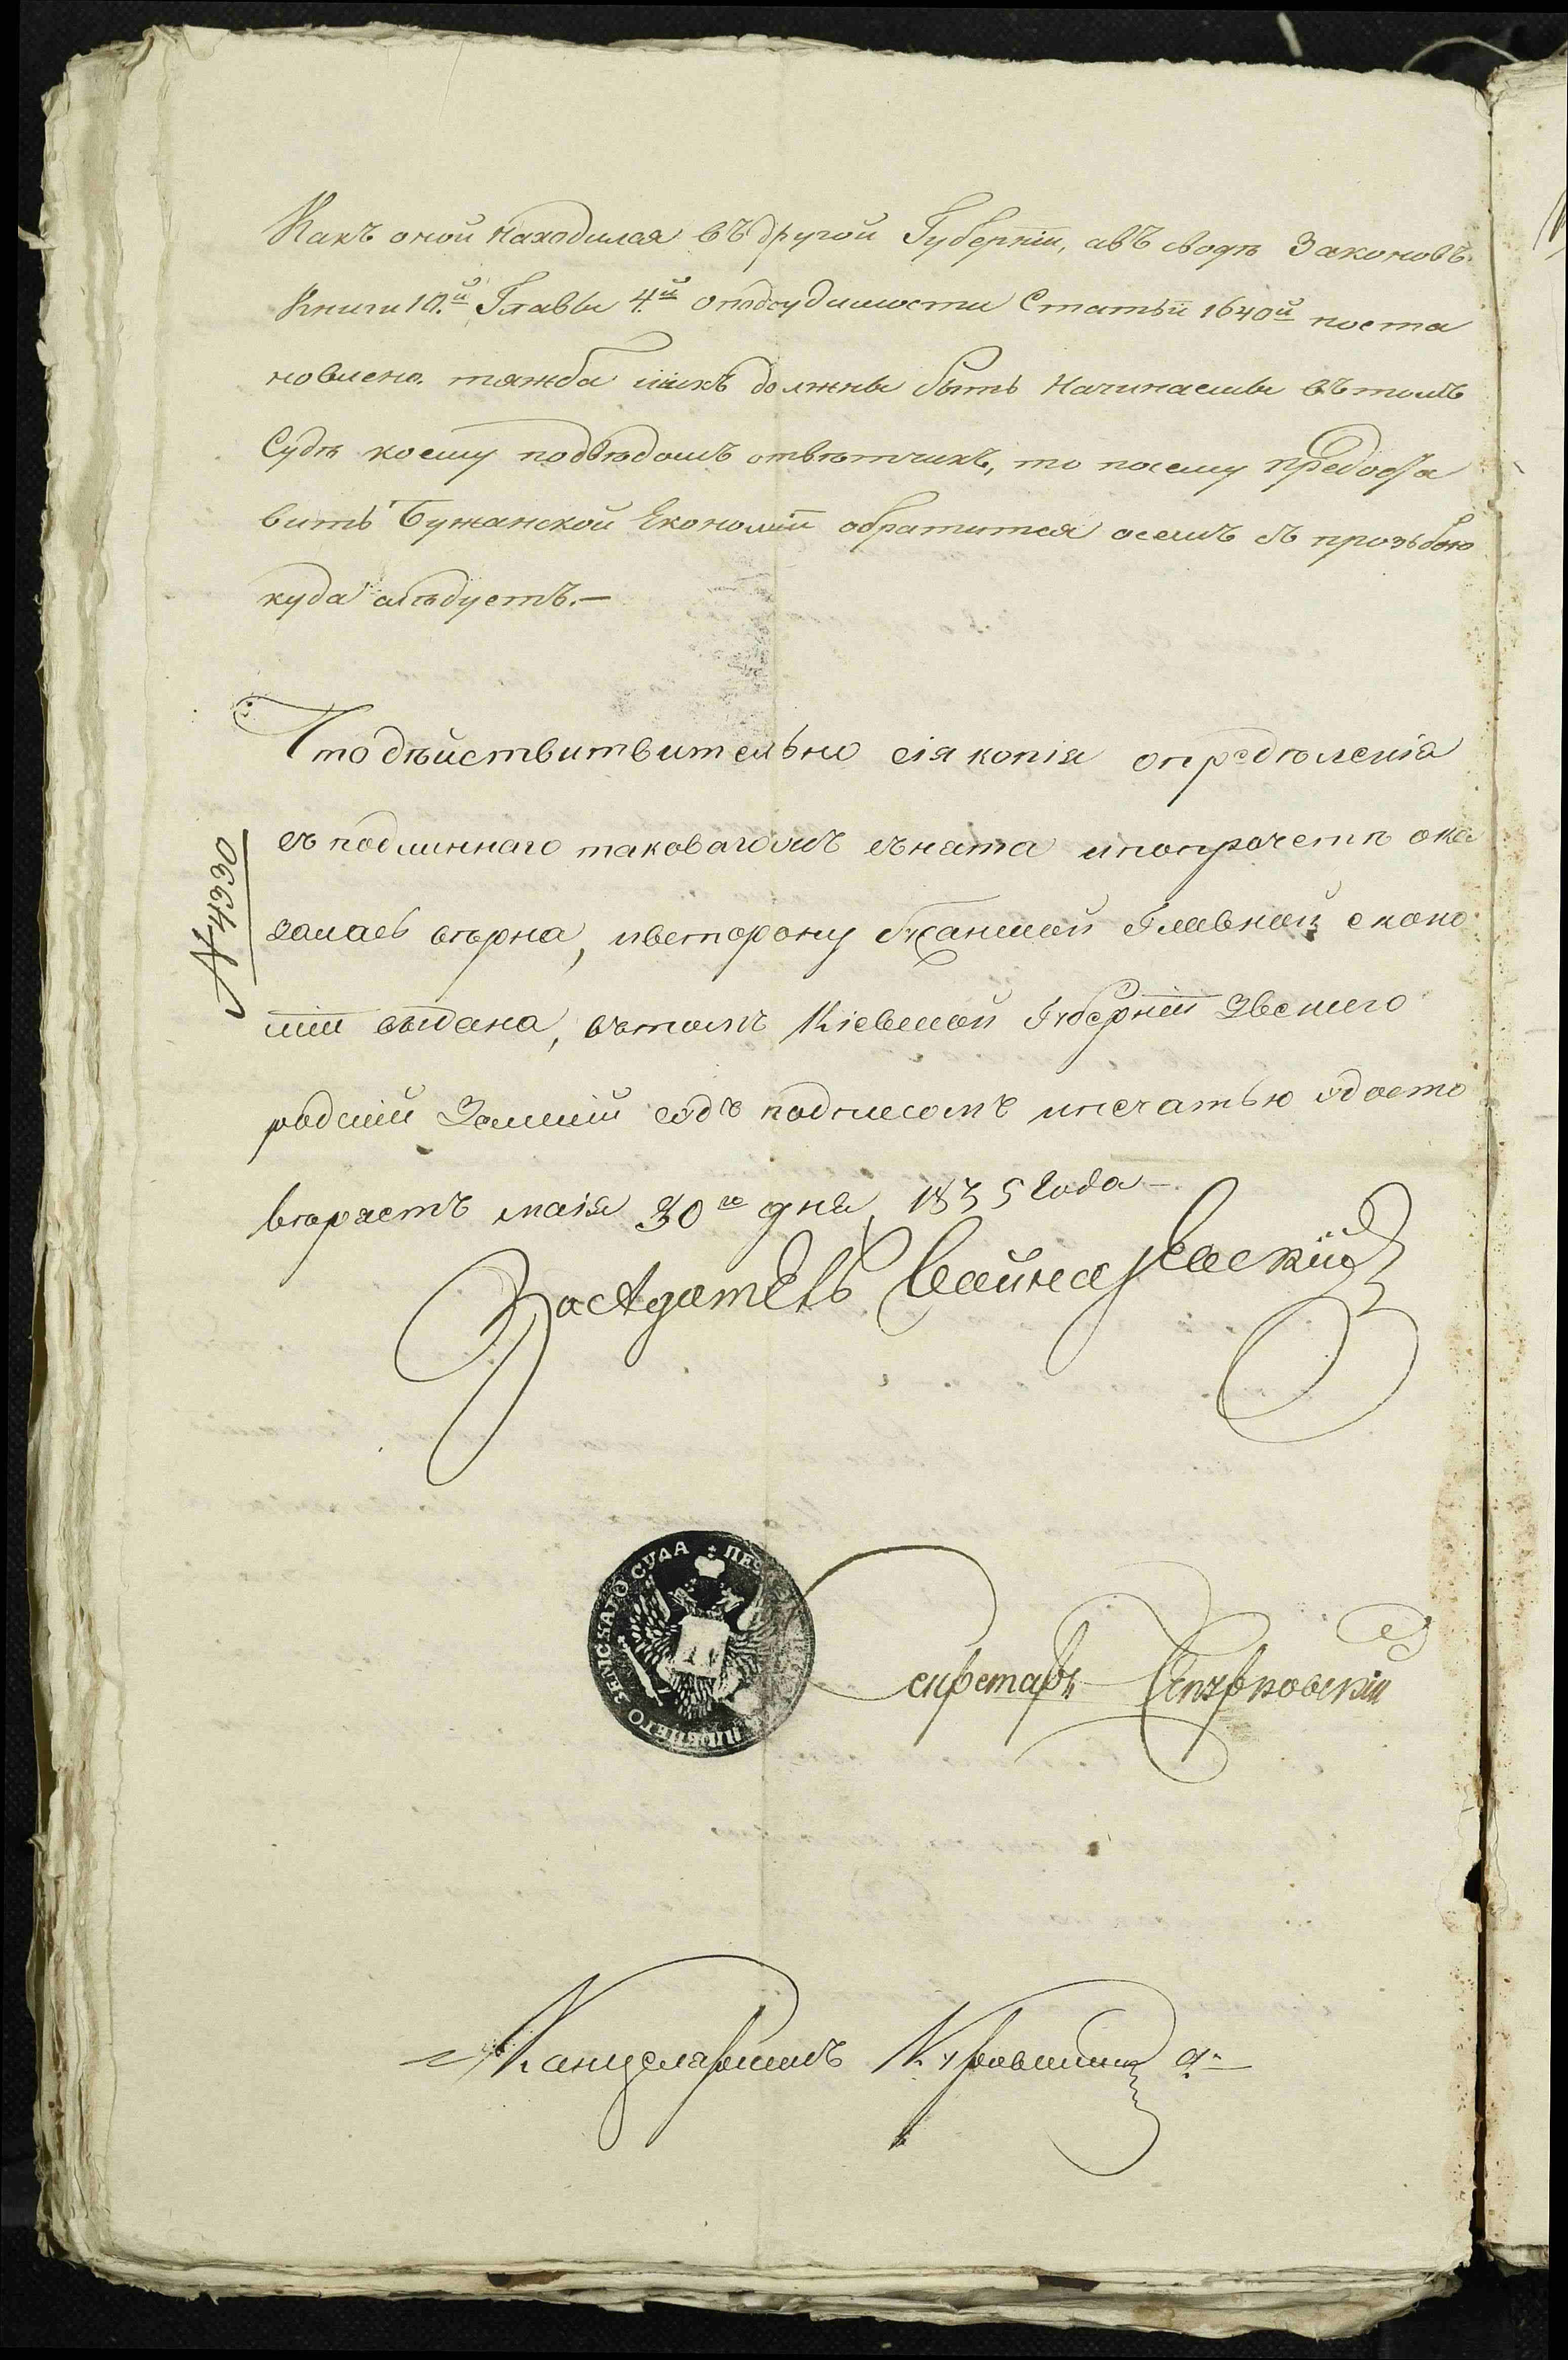 Какъ оной находился въ другой Губерніи, а въ сводѣ Законовъ
Книги 10.й Главы 4.й о подсудимости Статьи 1640й поста
новлено. тяжба и искъ должны быть начинаемы въ томъ
Судѣ коему подвѣдомъ отвѣтчикъ, то посему предоста
вить Бужанской Економіи обратится осемъ съ прозьбою
куда слѣдуетъ.—
Что дѣйствитвительно сія копія опредѣленія
съ подлиннаго таковагожъ снята и попрочетѣ ока
залась вѣрна, и въ сторону Главной еконо
міи выдана, въ томъ Кіевской Губерніи Звениго
родскій Земскій судъ подписомъ и печатью удосто
вѣряетъ маія 30го дня 1835 года—
N 4330
Засѣдатель
ЗЕМСКАГО СУДА
Секретарь
Канцеляристъ